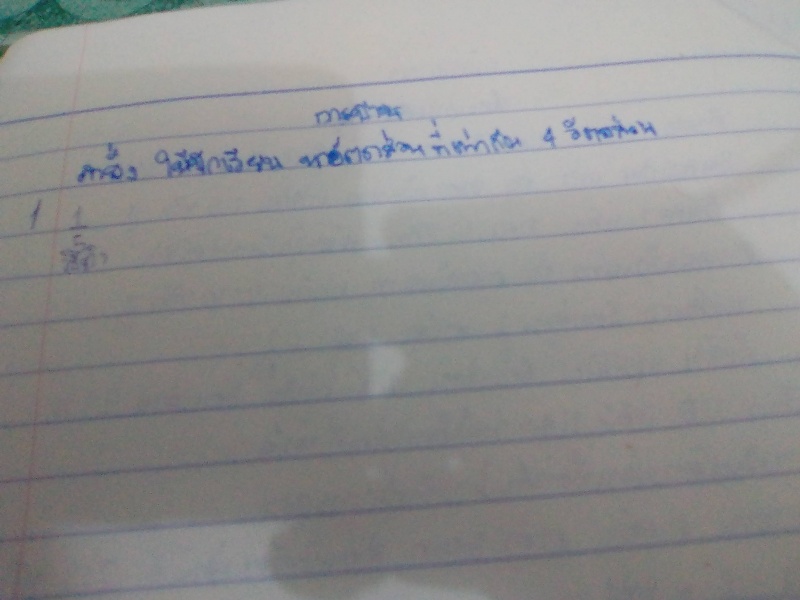 การบ้าน
คำสั่ง ให้นักเรียน หาอัตราส่วนที่เท่ากัน 4 อัตราส่วน
1 1/5